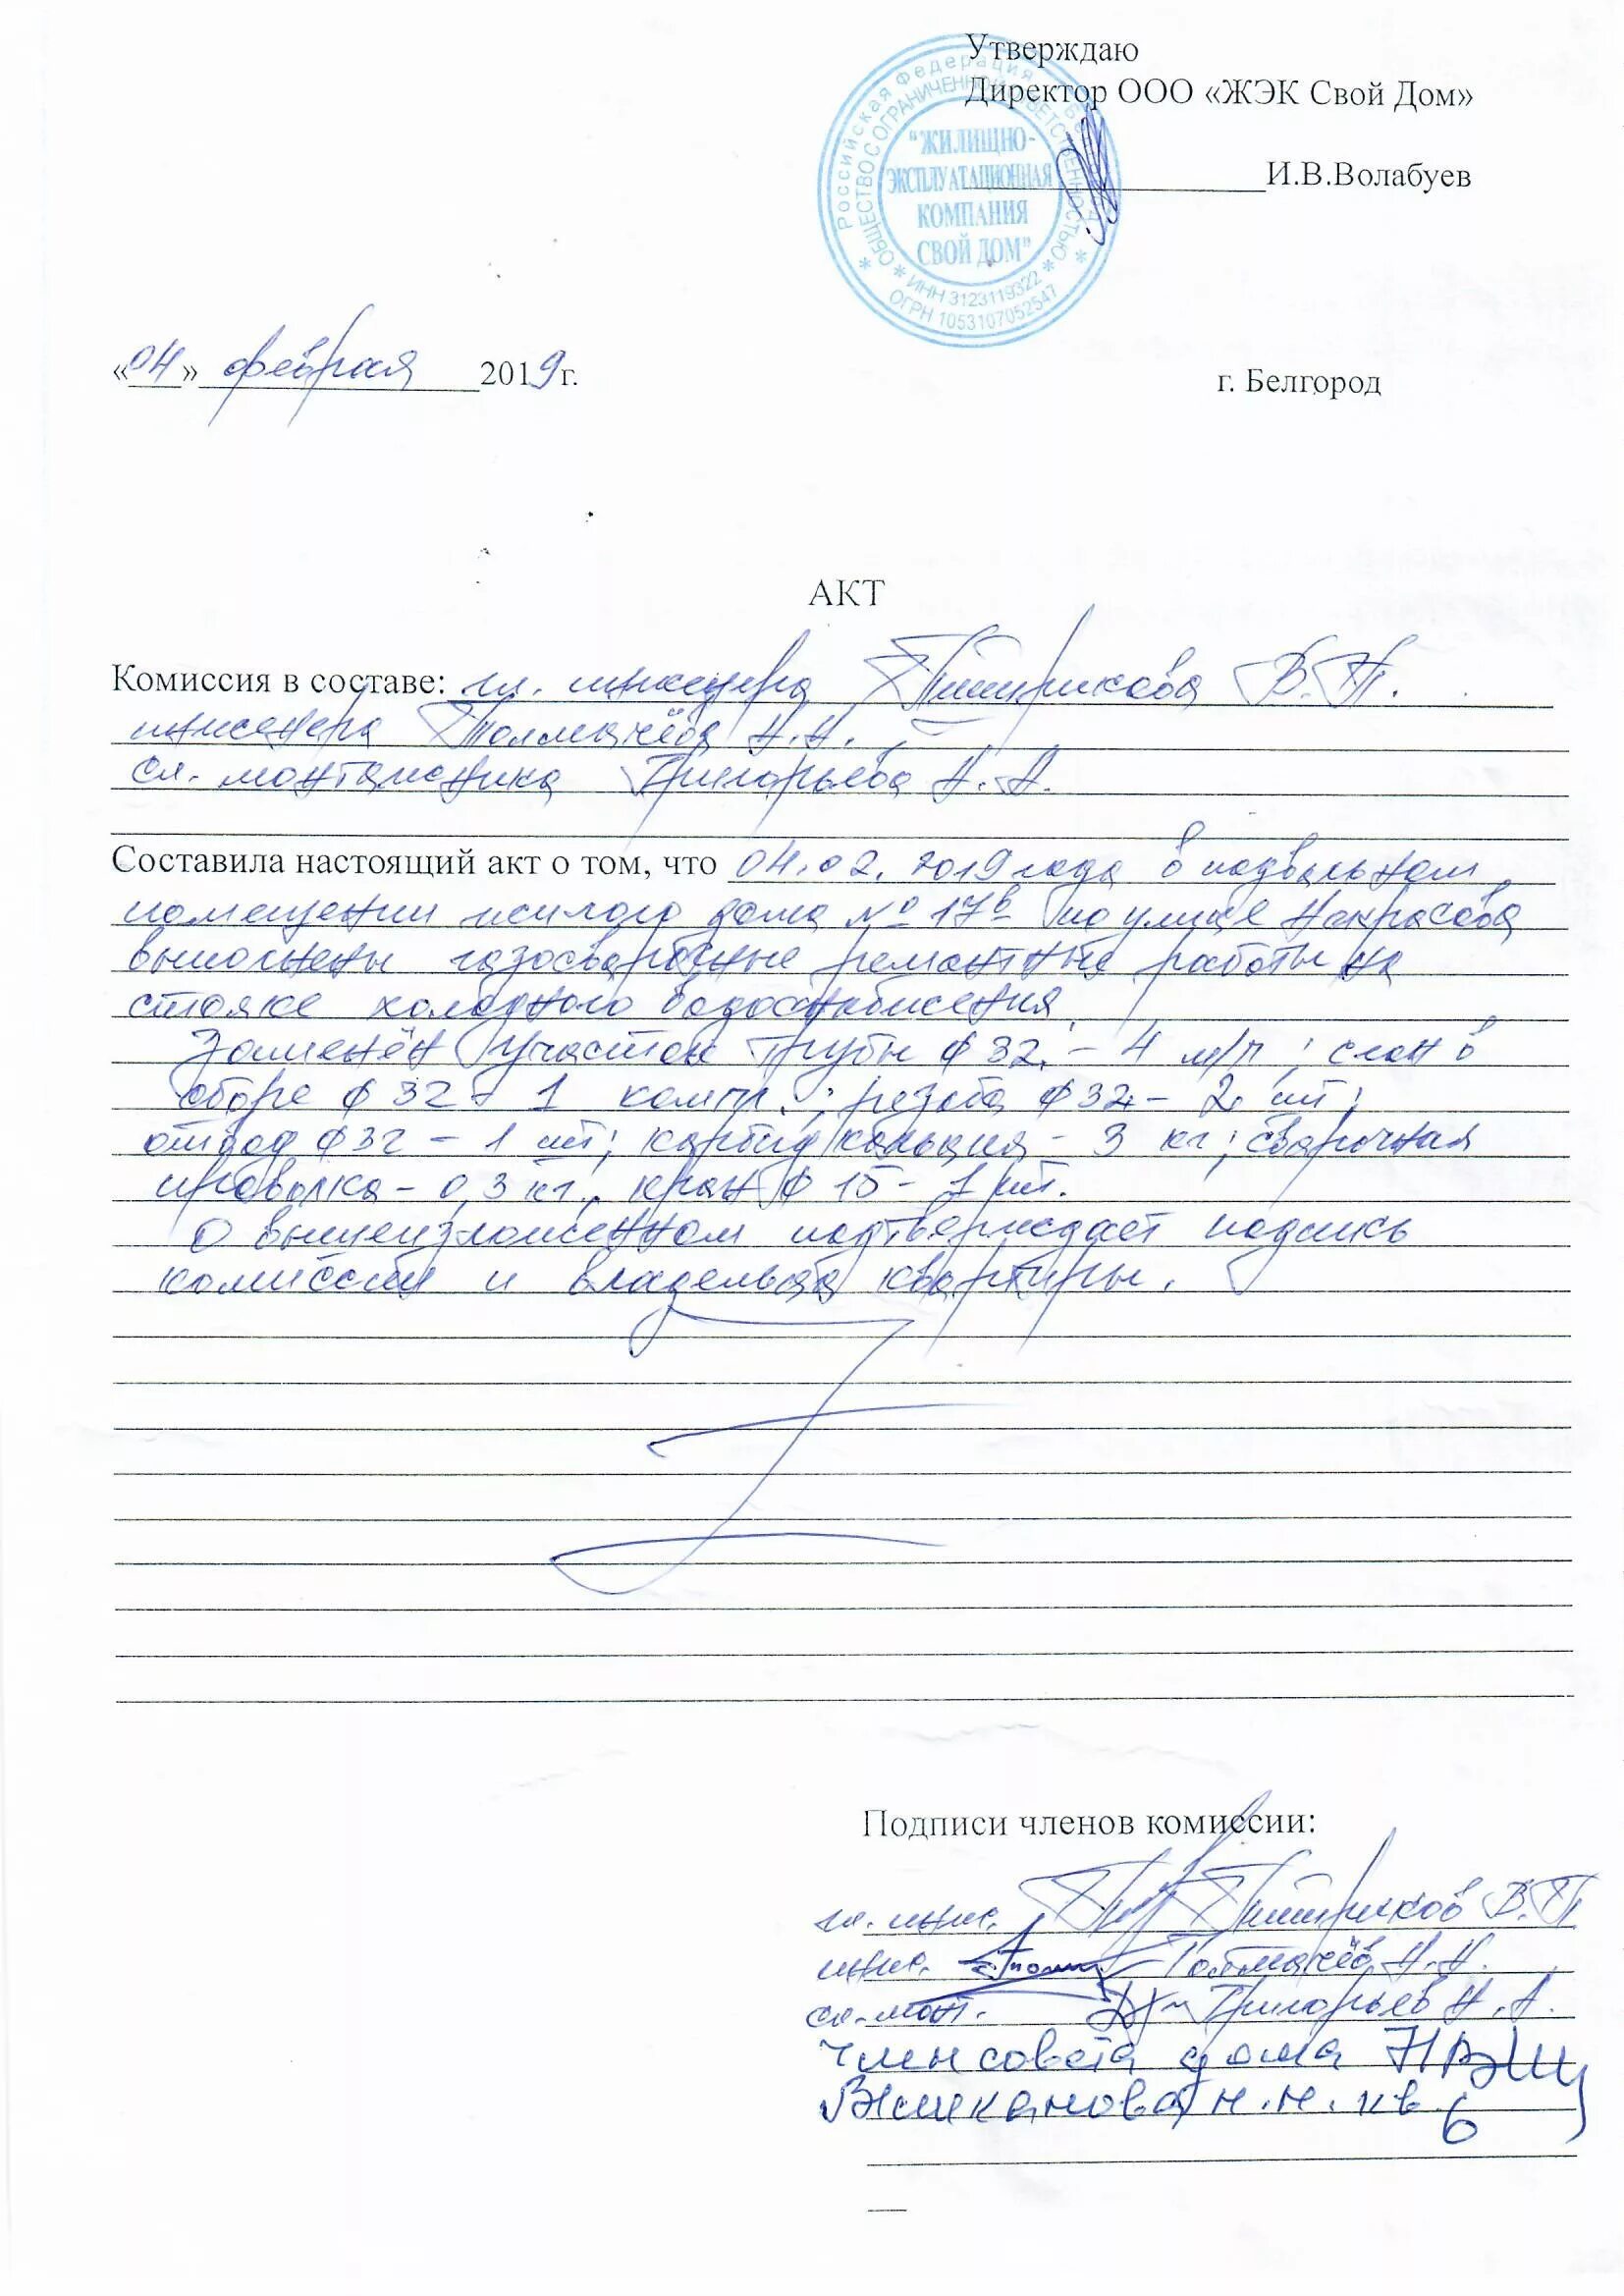 Утверждаю
Директор ООО «ЖЭК Свой Дом»
И.В.Волабуев
Российская Федерация
ОБЩЕСТВО С ОГРАНИЧЕННОЙ ОТВЕТСТВЕННОСТЬЮ
"ЖИЛИЩНО-
ЭКСПЛУАТАЦИОННАЯ
КОМПАНИЯ
СВОЙ ДОМ"
ИНН 3123119322
ОГРН 1053107052547
«04» февраля 2019г.
г. Белгород
АКТ
Комиссия в составе: гл. инженера В.П.
инженера Толмачёва Н.Н.,
сл. монтажника Григорьева А.А.
Составила настоящий акт о том, что 04.02.2019 года в подвальном
помещении жилого дома № 17в по улице Некрасова
выполнены газосварочные ремонтные работы на
стояке холодного водоснабжения.
Заменён участок трубы ф 32 - 4 м/п; сгон в
сборе ф 32 - 1 компл.; резьба ф 32 - 2 шт;
отвод ф 32 - 1 шт; карбид кальция - 3 кг; сварочная
проволка - 0,3 кг, кран ф 15 - 1 шт.
О вышеизложенном подтверждает подпись
комиссии и владельца квартиры.
Подписи членов комиссии:
гл. инж. В.П.
инж. Толмачёв Н.Н.
сл. монт. Григорьев А.А.
Член совета дома
н.н. кв. 6